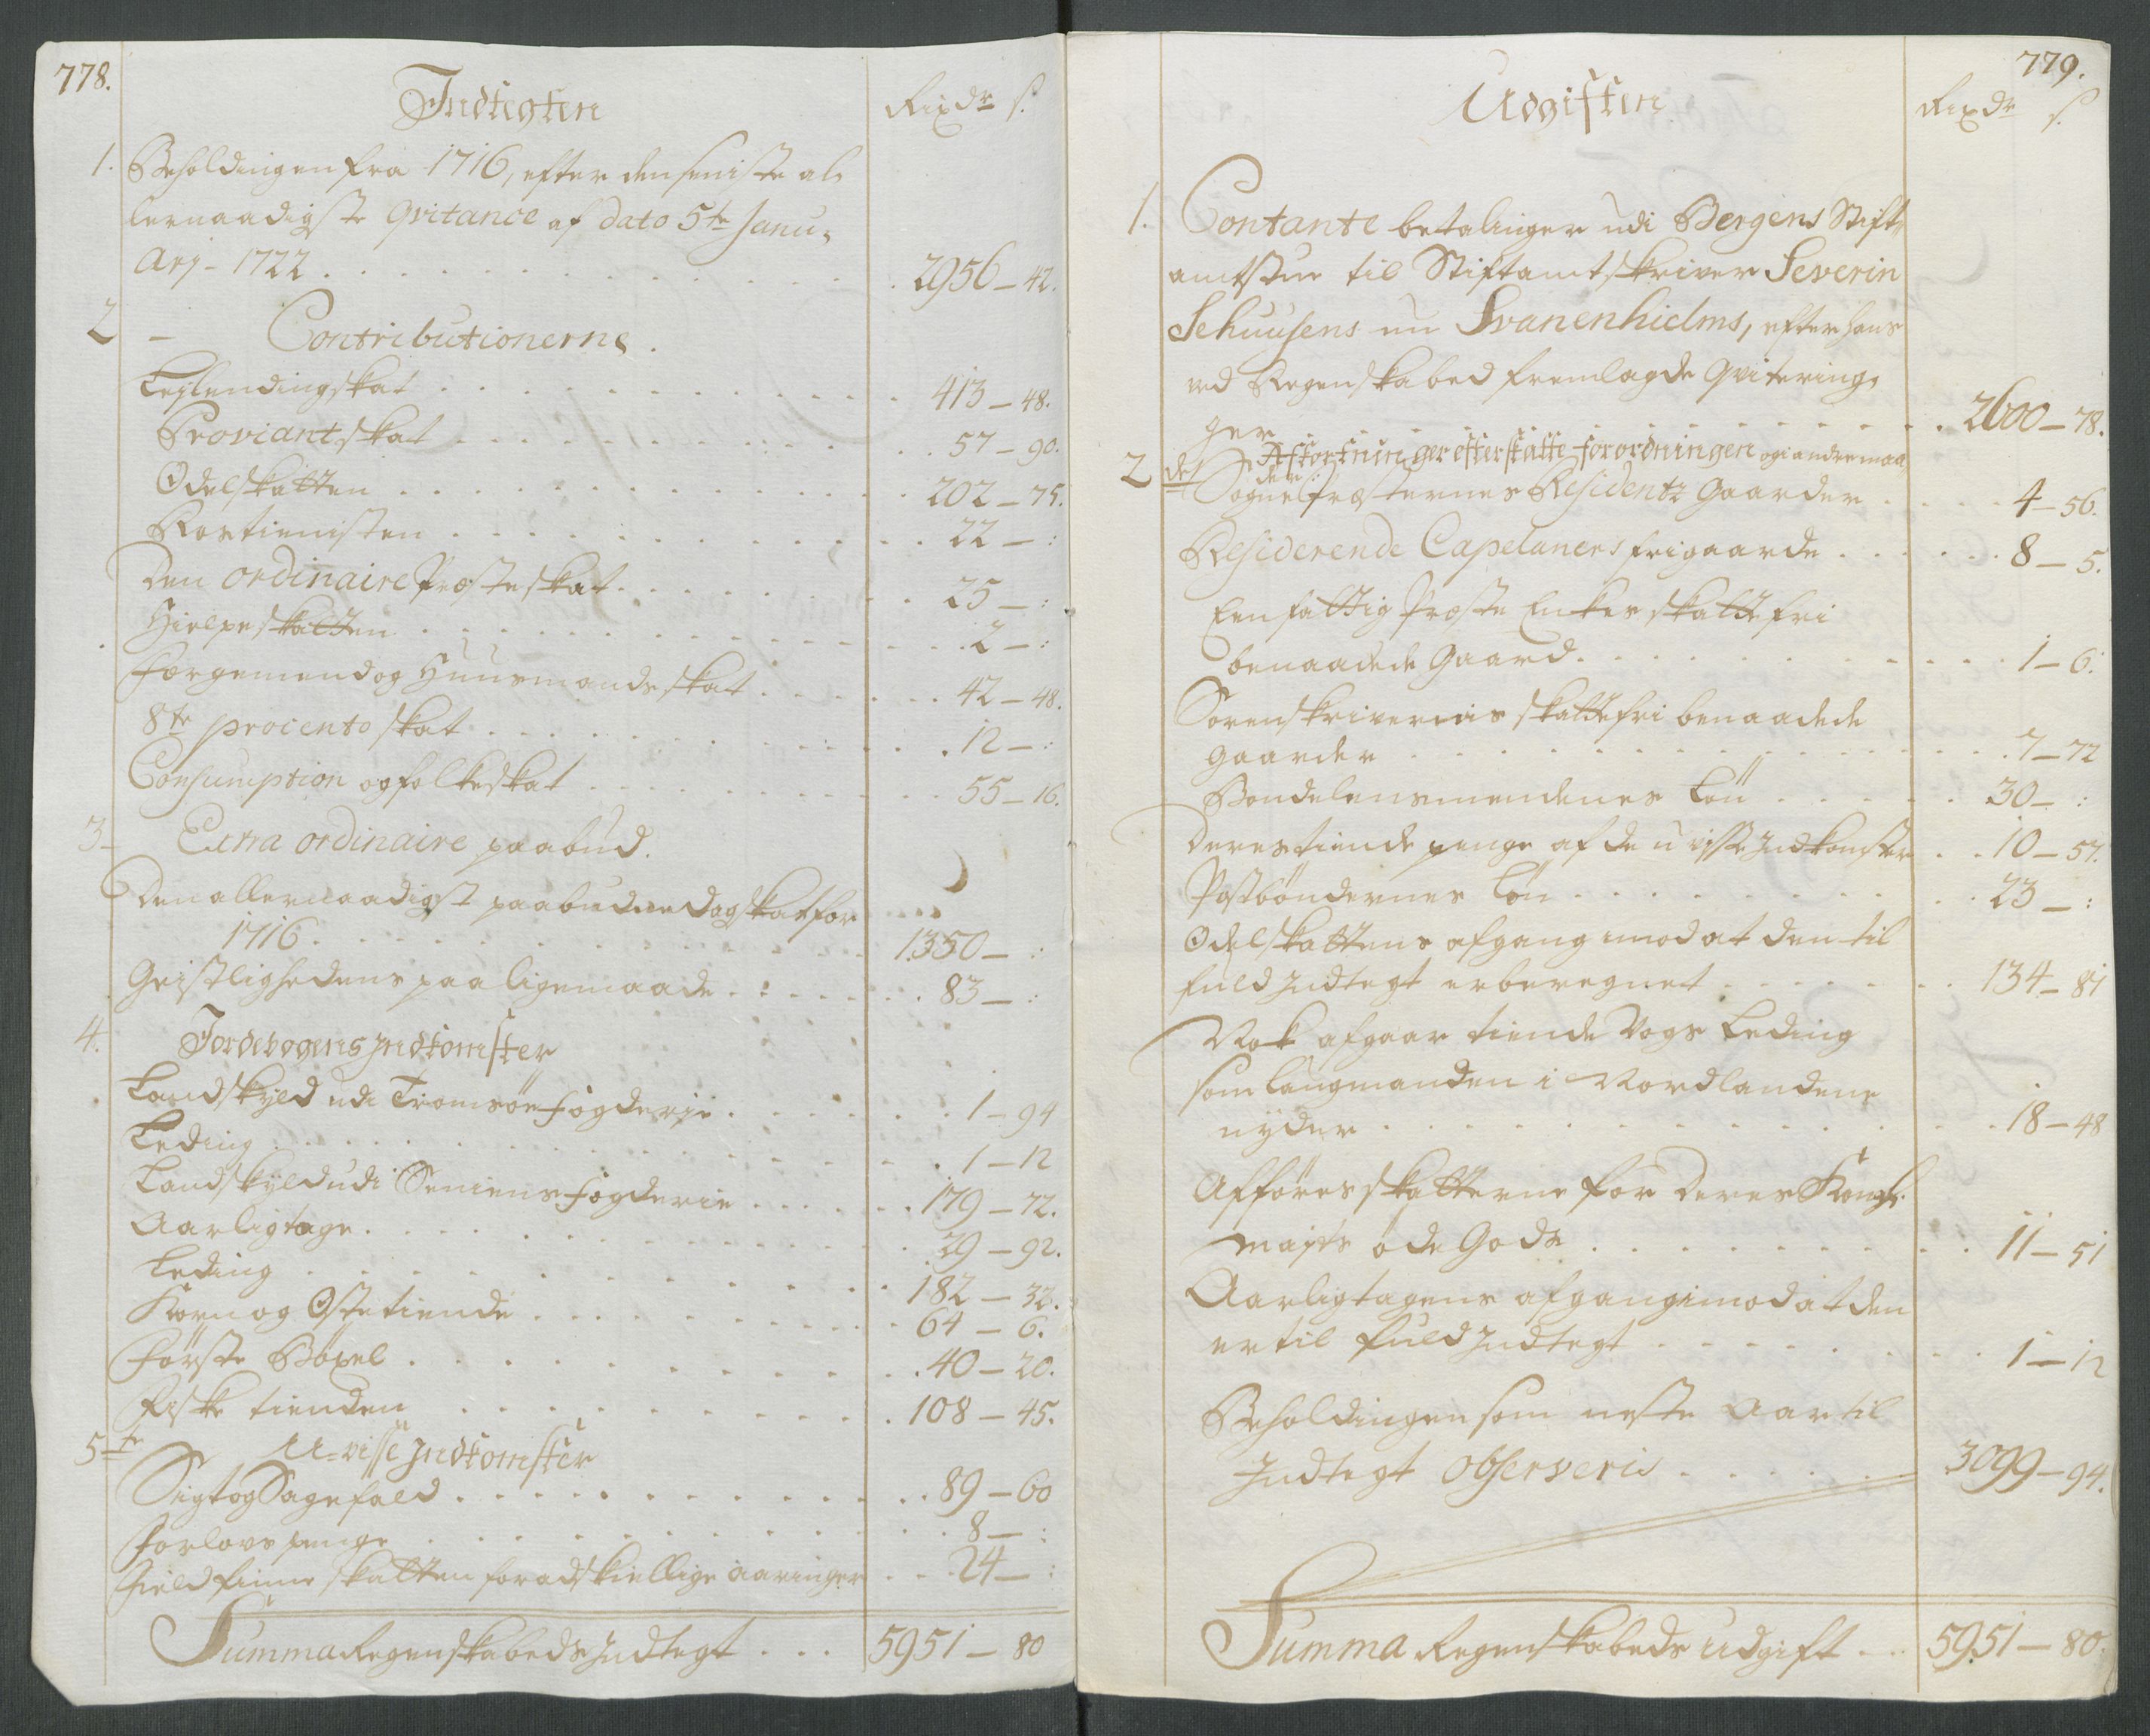 778.
Indtegten
Rixdr s.
1. Beholdingen fra 1716, efter den seniste al-
lernaadigste Qvitance af dato 5te Janu-
arj - 1722 . . . . 2956 - 42.
2 - Contributionerne.
Leylendingskat . . . . 413 - 48.
Proviantskat . . . . 57 - 90.
Odelskatten . . . . 202 - 75.
Rostienisten . . . . 22 - :
Den ordinaire Præsteskat . . . . 25 - :
Hielpeskatten . . . . 2 - :
Borgemend og Huusmandsskat . . . . 42 - 48.
8te procento skat . . . . 12 - :
Consumption og folkeskat . . . . 55 - 16.
3 - Extra ordinaire paabud.
Den allernaadigst paabudne Dagskat for
1716 . . . . 1350 - :
Geistlighedens paa ligemaade . . . . 83 - :
4. Jordebogens Indkomster
Landskyld udi Tromsöe fogderie . . . . 1 - 94
Leding . . . . 1 - 12
Landskyld udi Seniens fogderie . . . . 179 - 72.
Aarligtage . . . . 29 - 92.
Leding . . . . 182 - 32.
Korn og Ostetiende . . . . 64 - 6.
Förste Böxel . . . . 40 - 20.
Fiske tienden . . . . 108 - 45.
5te U-visse Indkomster
Sigt og Sagefald . . . . 89 - 60
Forlovs penge . . . . 8 - :
Field finne skatten for adskiellige aaringer . . . 24 - :
Summa Regenskabeds Indtegt . . . 5951 - 80
779.
Udgiften
Rixdr s.
1. Contante betalinger udi Bergens Stift-
amtstue til Stiftamtskriver Severin
Sehuusens nu Svanenhielms, efter hans
ved Regenskabed fremlagde Qvitering-
ger . . . . 2600 - 78.
2det Afkortninger efter skatte-forordningen og i andre maa-
der :
Sogne Præsternes Residentz Gaarder . . . . 4 - 56.
Residerende Capelaners frigaarde . . . . 8 - 5.
Een fattig Præste Enkes skatte fri
benaadede Gaard . . . . 1 - 6.
Sorenskrivernis skattefri benaadede
gaarder . . . . 7 - 72
Bondelensmendenes Lön . . . . 30 - :
Deres tiende penge af de u visse Indkomster . . 10 - 57.
Postböndernes Lön . . . . 23 - :
Odelskattens afgang imod at den til
fuld Indtegt er beregnet . . . . 134 - 81
Nok afgaar tiende Vogs Leding
som laugmanden i Nordlandene
nyder . . . . 18 - 48
Afföres skatterne for Deres Kongl.
mayts öde Gods . . . . 11 - 51
Aarligtagens afgang imod at den
er til fuld Indtegt . . . . 1 - 12
Beholdingen som neste Aar til
Indtegt observeris . . . . 3099 - 94.
Summa Regenskabeds Udgift . . 5951 - 80.